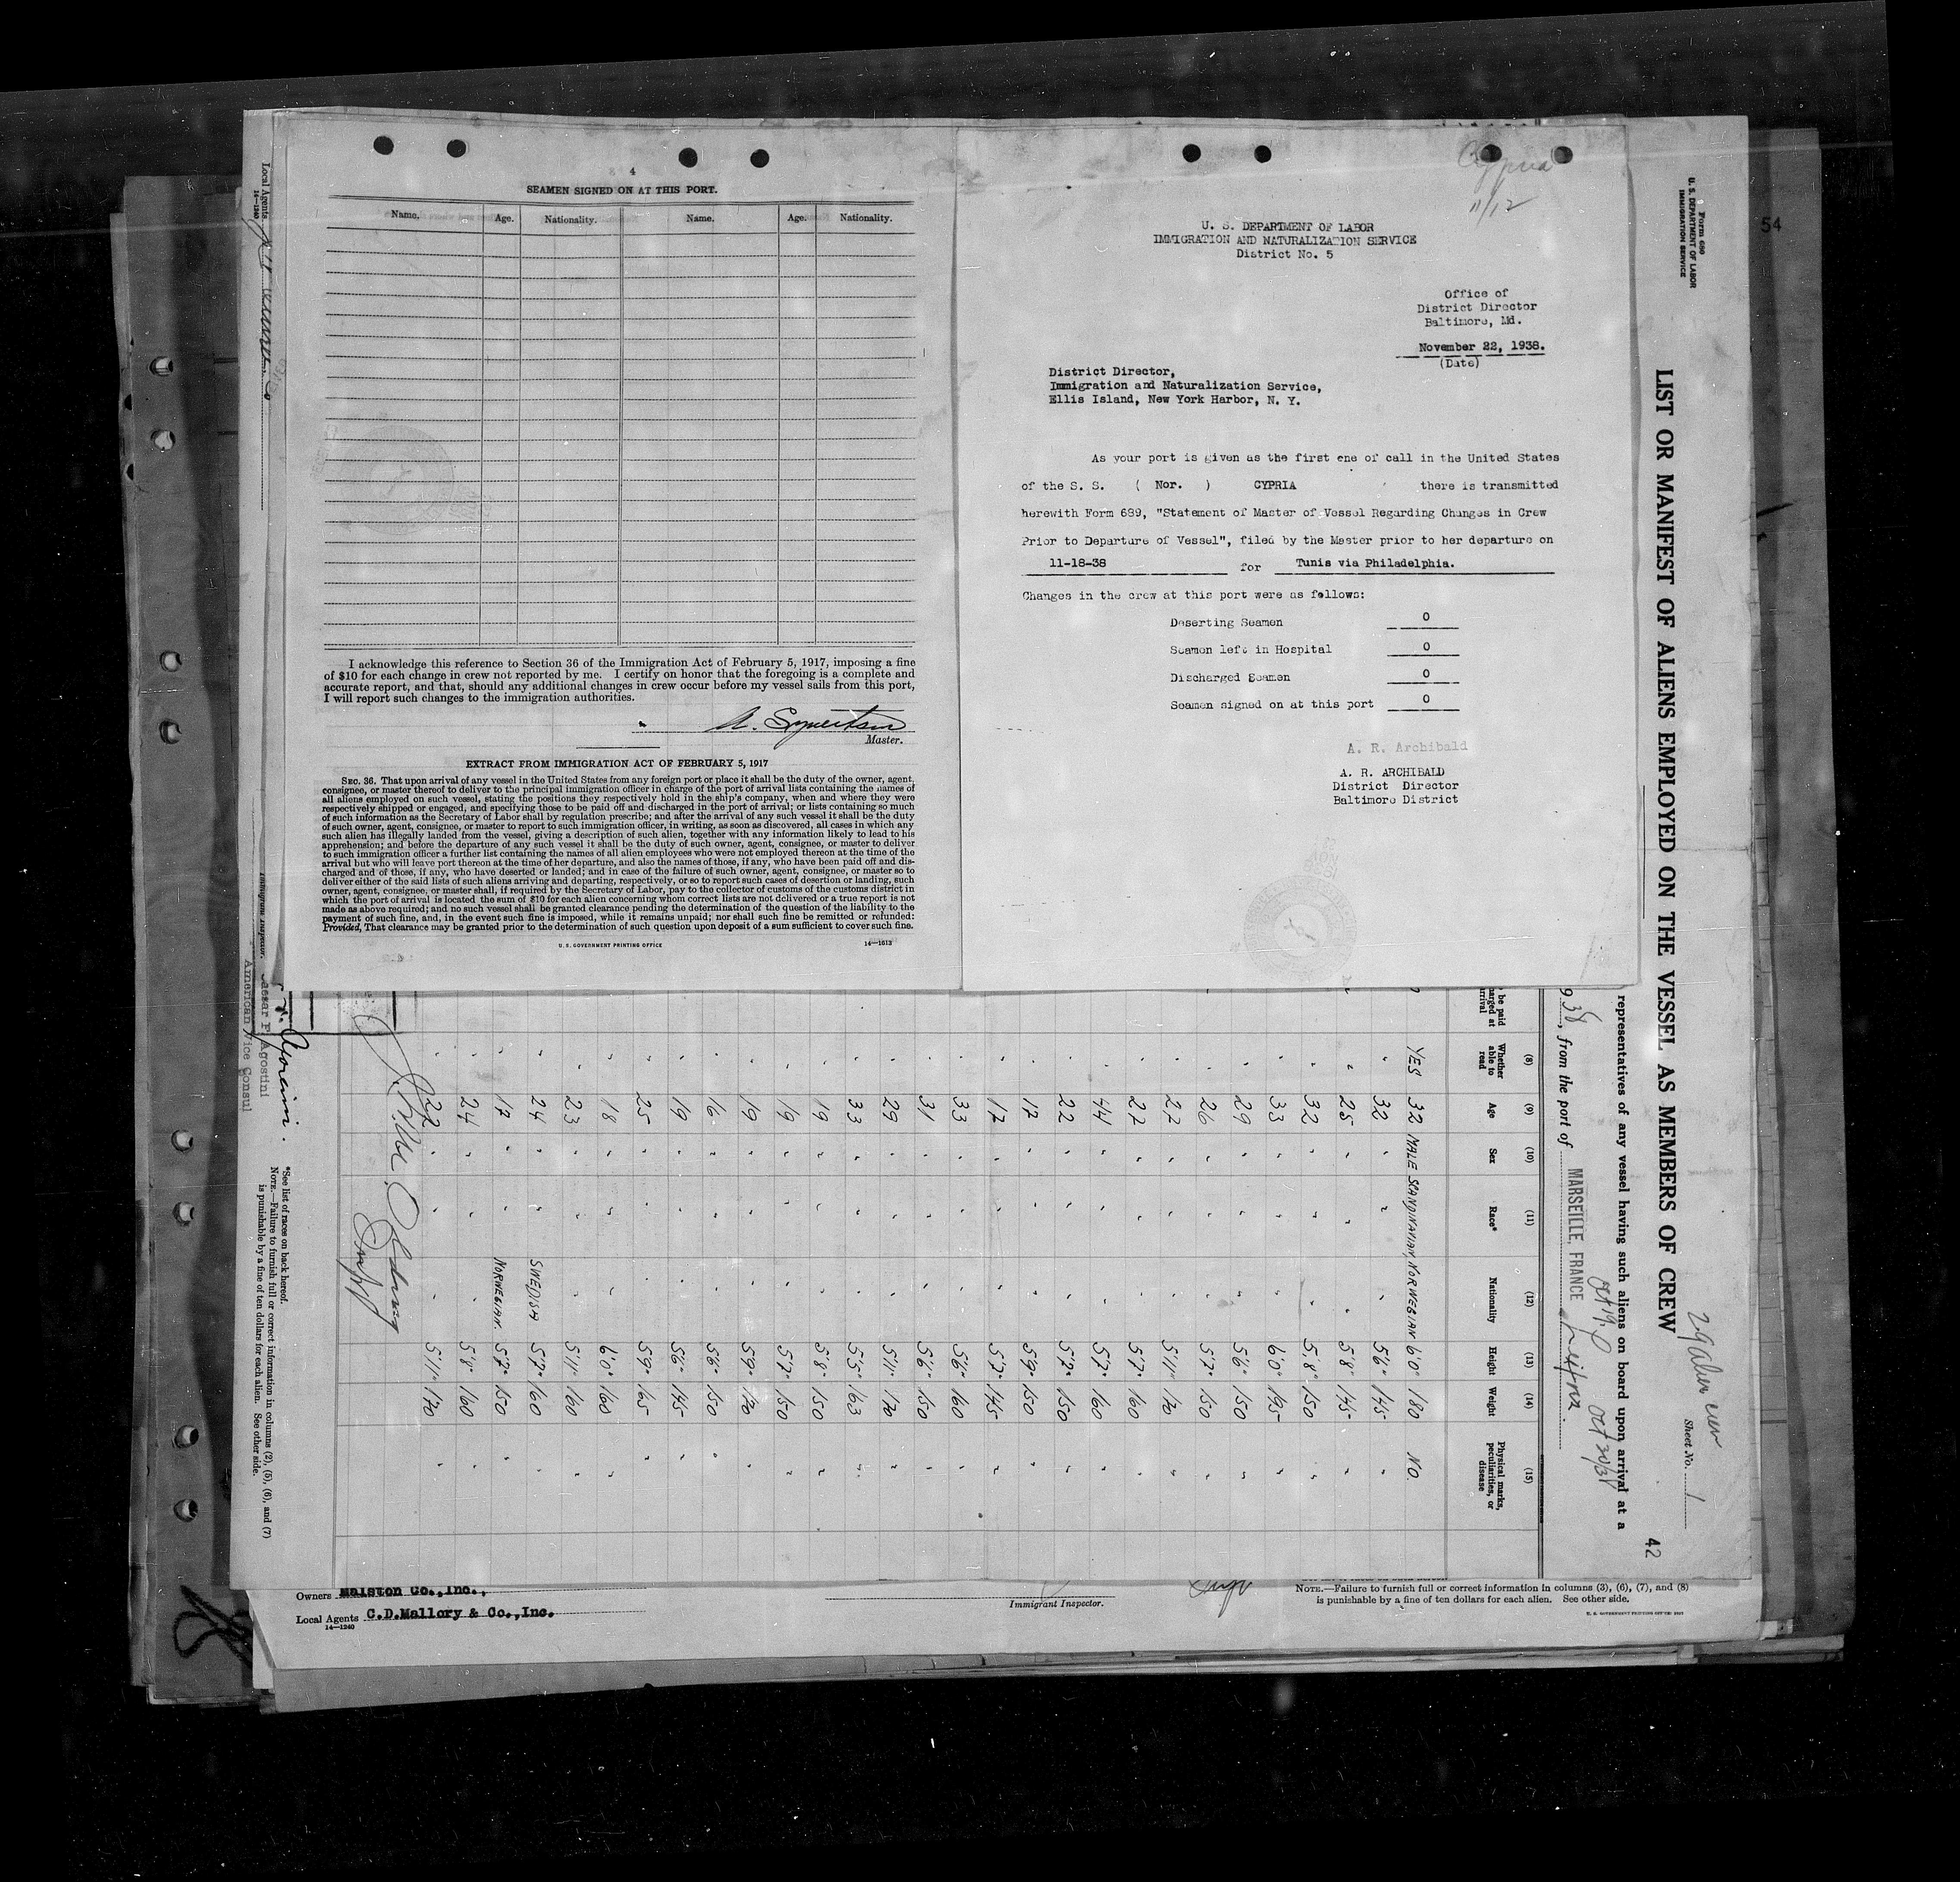 4
SEAMEN SIGNED ON AT THIS PORT.
Name. Age. Nationality. Name. Age. Nationality.
I acknowledge this reference to Section 36 of the Immigration Act of February 5, 1917, imposing a fine
of $10 for each change in crew not reported by me. I certify on honor that the foregoing is a complete and
accurate report, and that, should any additional changes in crew occur before my vessel sails from this port,
I will report such changes to the immigration authorities.
Master.
EXTRACT FROM IMMIGRATION ACT OF FEBRUARY 5, 1917
SEC. 36. That upon arrival of any vessel in the United States from any foreign port or place it shall be the duty of the owner, agent,
consignee, or master thereof to deliver to the principal immigration officer in charge of the port of arrival lists containing the names of
all aliens employed on such vessel, stating the positions they respectively hold in the ship's company, when and where they were
respectively shipped or engaged, and specifying those to be paid off and discharged in the port of arrival; or lists containing so much
of such information as the Secretary of Labor shall by regulation prescribe; and after the arrival of any such vessel it shall be the duty
of such owner, agent, consignee, or master to report to such immigration officer, in writing, as soon as discovered, all cases in which any
such alien has illegally landed from the vessel, giving a description of such alien, together with any information likely to lead to his
apprehension; and before the departure of any such vessel it shall be the duty of such owner, agent, consignee, or master to deliver
to such immigration officer a further list containing the names of all alien employees who were not employed thereon at the time of the
arrival but who will leave port thereon at the time of her departure, and also the names of those, if any, who have been paid off and dis-
charged and of those, if any, who have deserted or landed; and in case of the failure of such owner, agent, consignee, or master so to
deliver either of the said lists of such aliens arriving and departing, respectively, or so to report such cases of desertion or landing, such
owner, agent, consignee, or master shall, if required by the Secretary of Labor, pay to the collector of customs of the customs district in
which the port of arrival is located the sum of $10 for each alien concerning whom correct lists are not delivered or a true report is not
made as above required; and no such vessel shall be granted clearance pending the determination of the question of the liability to the
payment of such fine, and, in the event such fine is imposed, while it remains unpaid; nor shall such fine be remitted or refunded:
Provided, That clearance may be granted prior to the determination of such question upon deposit of a sum sufficient to cover such fine.
U. S. GOVERNMENT PRINTING OFFICE 14—1613
Cypria
11/12
U. S. DEPARTMENT OF LABOR
IMMIGRATION AND NATURALIZATION SERVICE
District No. 5
Office of
District Director
Baltimore, Md.
November 22, 1938.
(Date)
District Director,
Immigration and Naturalization Service,
Ellis Island, New York Harbor, N. Y.
As your port is given as the first one of call in the United States
of the S. S. ( Nor. ) CYPRIA there is transmitted
herewith Form 689, "Statement of Master of Vessel Regarding Changes in Crew
Prior to Departure of Vessel", filed by the Master prior to her departure on
11-18-38 for Tunis via Philadelphia.
Changes in the crew at this port were as follows:
Deserting Seamen 0
Seamen left in Hospital 0
Discharged Seamen 0
Seamen signed on at this port 0
A. R. Archibald
A. R. ARCHIBALD
District Director
Baltimore District
54
Form 680
U. S. DEPARTMENT OF LABOR
IMMIGRATION SERVICE
29 alien crew
Sheet No. 1
42
LIST OR MANIFEST OF ALIENS EMPLOYED ON THE VESSEL AS MEMBERS OF CREW
representatives of any vessel having such aliens on board upon arrival at a
Oct 20/38
938, from the port of MARSEILLE, FRANCE
be paid
arged at
rrival
(8) Whether able to read
(9) Age
(10) Sex
(11) Race*
(12) Nationality
(13) Height
(14) Weight
(15) Physical marks, peculiarities, or disease
YES 32 MALE SCANDINAVIAN NORWEGIAN 6'0" 180 NO.
" 32 " " " 5'6" 145 "
" 25 " " " 5'8" 145 "
" 32 " " " 5'8" 150 "
" 33 " " " 6'0" 195 "
" 29 " " " 5'6" 150 "
" 26 " " " 5'7" 150 "
" 27 " " " 5'11" 170 "
" 22 " " " 5'7" 160 "
" 44 " " " 5'7" 160 "
" 22 " " " 5'7" 150 "
" 17 " " " 5'9" 150 "
" 17 " " " 5'7" 145 "
" 33 " " " 5'6" 160 "
" 31 " " " 5'6" 150 "
" 29 " " " 5'11" 170 "
" 33 " " " 5'5" 163 "
" 19 " " " 5'8" 150 "
" 19 " " " 5'7" 150 "
" 19 " " " 5'9" 170 "
" 16 " " " 5'6" 150 "
" 19 " " " 5'6" 145 "
" 25 " " " 5'9" 165 "
" 18 " " " 6'0" 160 "
" 23 " " " 5'11" 160 "
" 24 " " SWEDISH 5'7" 160 "
" 17 " " NORWEGIAN. 5'7" 150 "
" 24 " " " 5'8" 160 "
" 22 " " " 5'11" 170 "
*See list of races on back hereof.
NOTE.—Failure to furnish full or correct information in columns (2), (5), (6), and (7)
is punishable by a fine of ten dollars for each alien. See other side.
Immigrant Inspector.
Agostini
American Vice Consul
Local Agents
14—1240
Owners Malston Co.,Inc.,
Local Agents C.D.Mallory & Co.,Inc.
14—1240
Immigrant Inspector.
NOTE.—Failure to furnish full or correct information in columns (3), (6), (7), and (8)
is punishable by a fine of ten dollars for each alien. See other side.